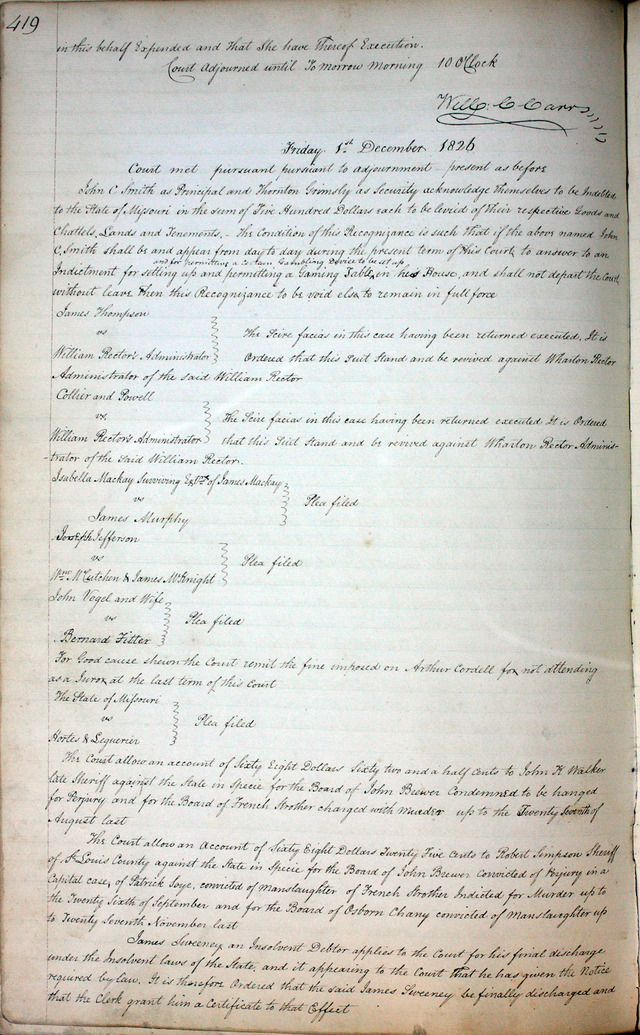 419
in this behalf Expended and that She have Thereof Execution.
Court Adjourned until Tomorrow Morning 10 OClock
Will: C Carr
Friday 1st December 1826
Court met pursuant pursuant to adjournment present as before
John C Smith as Principal and Thornton Grimsly as Security acknowledge themselves to be Indebted
to the State of Missouri in the sum of Five Hundred Dollars each to be levied of their respective Goods and
Chattels, Lands and Tenements. - the Condition of this Recognizance is such that if the above named John
C, Smith shall be and appear from day to day during the present term of this Court, to answer to an
and for permitting a certain Gambling Device to be set up,
Indictment for setting up and permitting a Gaming Table, in his House, and shall not depart the Court
without leave then this Recognizance to be void else to remain in full force
James Thompson
vs
The Scire facias in this case having been returned executed, It is
William Rector's Administrator Ordered that this Suit Stand and be revived against Wharton Rector
Administrator of the said William Rector
Collier and Powell
vs.
The Scire facias in this case having been returned executed It is Ordered
William Rector's Administrator that this Suit Stand and be revived against Wharton Rector Adminis-
-trator of the Said William Rector.
Isabella Mackay Surviving Extx of James Mackay
vs Plea filed
James Murphy
Joseph Jefferson
vs Plea filed
Wm McCutchen & James McKnight
John Vogel and Wife
vs Plea filed
Bernard Fitter
For Good cause shewn the Court remit the fine imposed on Arthur Cordell for not attending
as a Juror at the last term of this Court
The State of Missouri
vs Plea filed
Hortes & Lequerier
The Court allow an account of Sixty Eight Dollars Sixty two and a half Cents to John K Walker
late Sheriff against the State in Specie for the Board of John Brewer Condemned to be hanged
for Perjury and for the Board of French Strother charged with Murder up to the Twenty Seventh of
August last
The Court allow an Account of Sixty Eight Dollars Twenty Five cents to Robert Simpson Sheriff
of St Louis County against the State in Specie for the Board of John Brewer Convicted of Perjury in a
Capital case, of Patrick Soye, convicted of manslaughter of French Strother Indicted for Murder up to
the Twenty Sixth of September and for the Board of Osborn Chany convicted of Manslaughter up
to Twenty Seventh November last
James Sweeney an Insolvent Debtor applies to the Court for his final discharge
under the Insolvent laws of the State, and it appearing to the Court that he has given the Notice
required by law. It is therefore Ordered that the said James Sweeney be finally discharged and
that the Clerk grant him a Certificate to that Effect